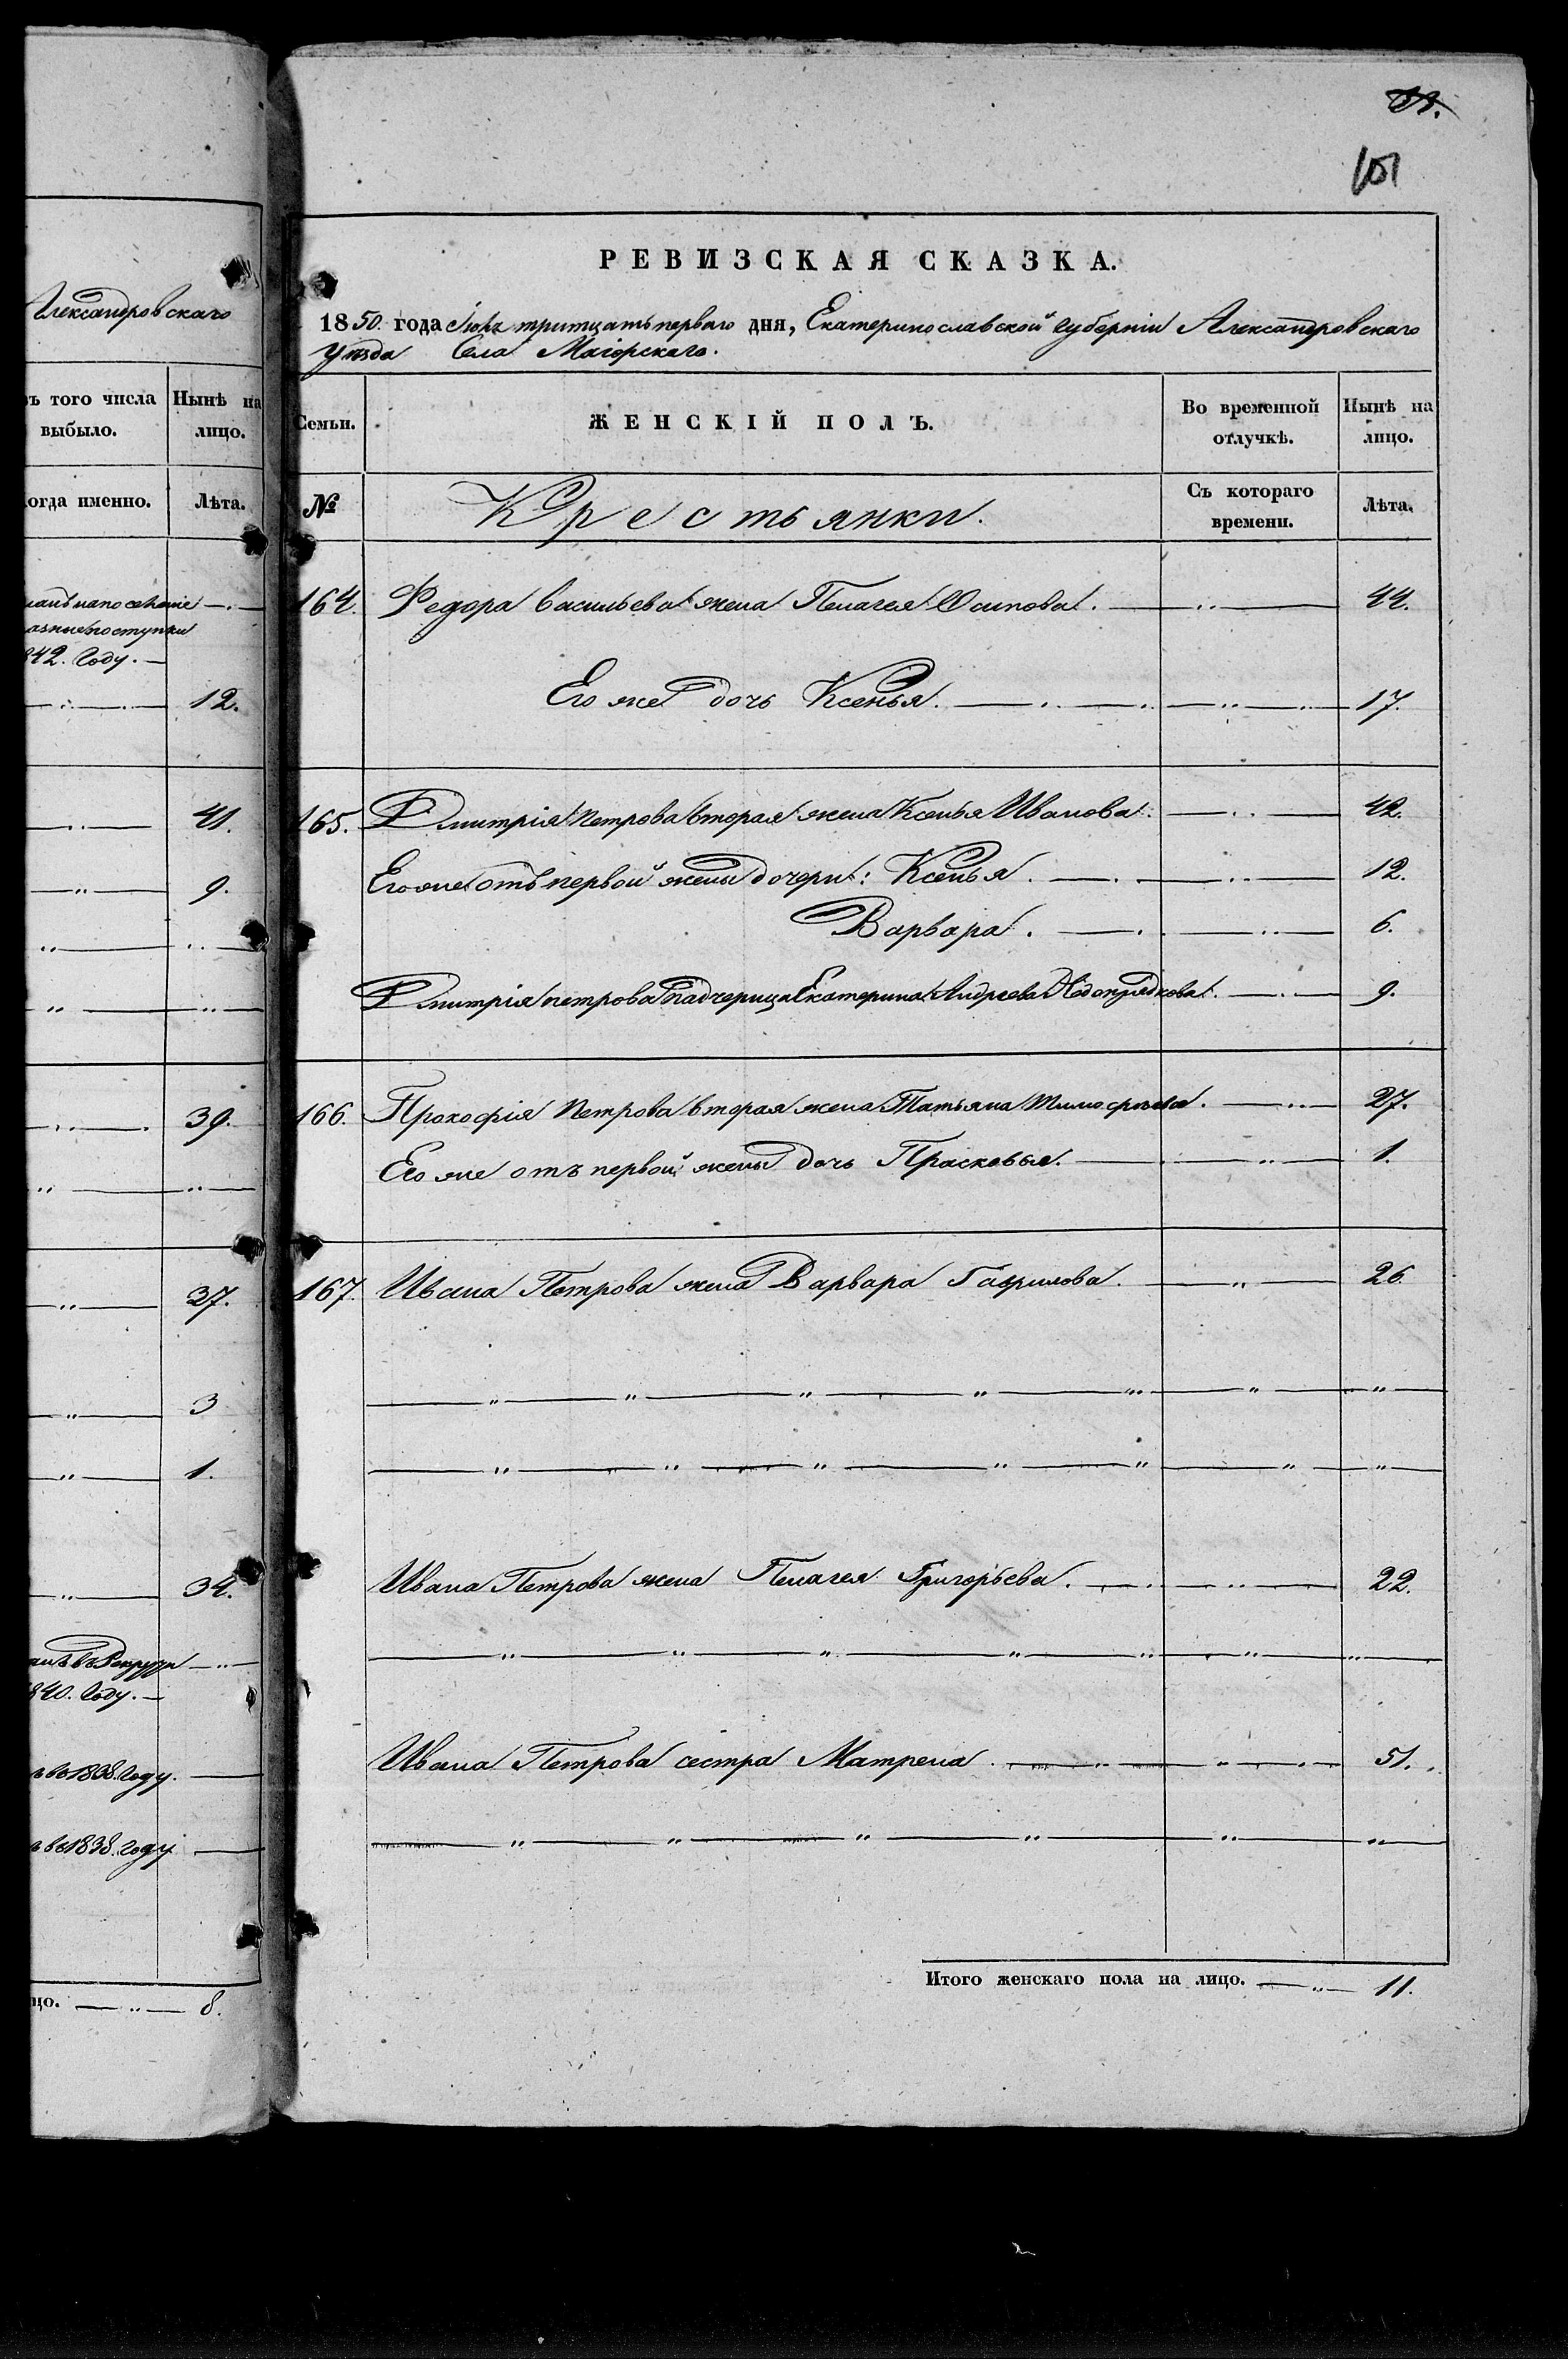 Александровскаго
того числа выбыло.
Нынѣ на лицо.
Когда именно.
Лѣта.
на поселеніе —
поступки
842. Году. —
12.
41.
9.
39.
37.
3
1.
34.
840. Году. —
1838. Году. —
1838. году —
цо. — 8.
101
РЕВИЗСКАЯ СКАЗКА.
1850. года Іюля тритцать перваго дня, Екатеринославской губерніи Александровскаго
уѣзда Села Маіорскаго.
Семьи.
ЖЕНСКІЙ ПОЛЪ.
Во временной отлучкѣ.
Нынѣ на лицо.
№
Крестьянки.
Съ котораго времени.
Лѣта.
164. Федора Васильева жена Пелагея Осипова. — 44.
Его же дочь Ксенья. — 17.
165. Дмитрія Петрова вторая жена Ксенья Иванова. — 42.
Его же отъ первой жены дочери: Ксенья. — 12.
Варвара. — 6.
Дмитрія Петрова падчерица Екатерина Андреева — 9.
166. Прокофія Петрова вторая жена Татьяна Тимофѣева. — 27.
Его же отъ первой жены дочь Прасковья. — 1.
167. Ивана Петрова жена Варвара Гаврилова. — 26.
Ивана Петрова жена Пелагея Григорьева. — 22.
Ивана Петрова сестра Матрена. — 51.
Итого женскаго пола на лицо. — 11.